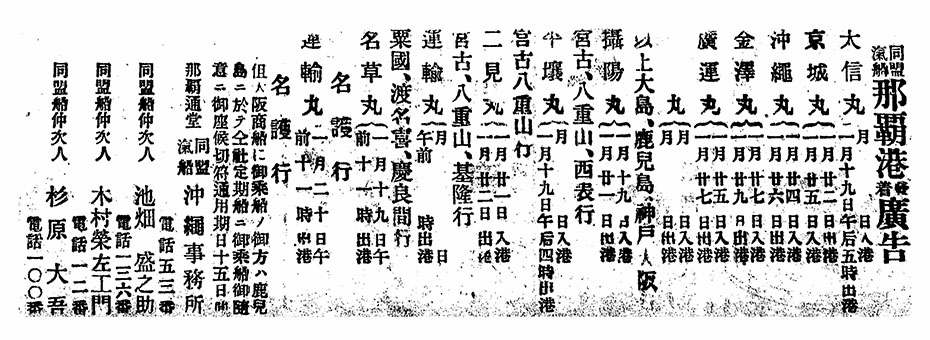 同盟汽船 那覇港発着廣告
太信丸 月 日入港
一月十九日午后五時出港
京城丸 一月廿二日入港
一月廿五日出港
沖繩丸 一月廿四日入港
一月廿六日出港
金澤丸 一月廿七日入港
月 日出港
廣運丸 一月廿五日入港
一月廿七日出港
丸 月 日入港
月 日出港
以上大島、鹿兒島、神戸、大阪
攝陽丸 一月十九日入港
一月廿一日出港
宮古、八重山、西表行
平壤丸 月 日入港
一月十九日午后四時出港
宮古八重山行
二見丸 一月廿一日入港
一月廿二日出港
宮古、八重山、基隆行
運輸丸 月 日
午前 時出港
粟國、渡名喜、慶良間行
名草丸 一月十九日午
前十一時出港
名護行
運輸丸 一月二十日午
前十一時出港
名護行
但大阪商船に御乘船ノ御方ハ鹿兒
島ニ於テ仝社定期船ニ御乘船御隨
意ニ御座候切符通用期日十五日間
那覇通堂 同盟汽船 沖繩事務所
電話五三番
同盟船仲次人 池畑盛之助
電話一三六番
同盟船仲次人 木村榮左工門
電話一二番
同盟船仲次人 杉原大吾
電話一〇〇番